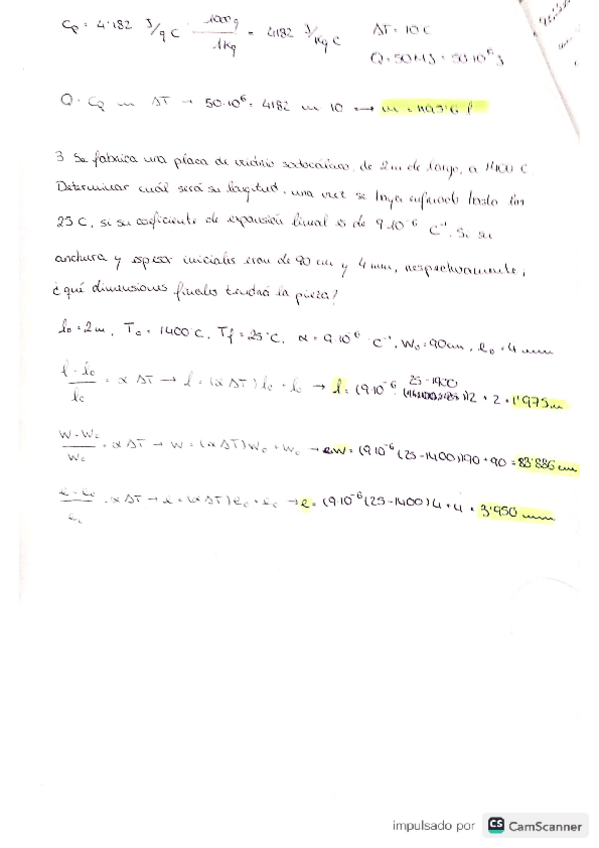 Cp = 4'182 J/g C · 1000g/1kg = 4182 J/kg C    ΔT = 10 C
Q = 50 MJ = 50·10⁶ J
Q = Cp m ΔT → 50·10⁶ = 4182 m 10 → m = 1195'6 l
3 Se fabrica una placa de vidrio sodocálcico, de 2m de largo, a 1400 C.
Determinar cuál será su longitud, una vez se haya enfriado hasta los
25 C, si su coeficiente de expansión lineal es de 9·10⁻⁶ C⁻¹. Si su
anchura y espesor iniciales eran de 90 cm y 4 mm, respectivamente,
¿qué dimensiones finales tendrá la pieza?
l₀ = 2m, T₀ = 1400 C, Tf = 25 C, α = 9·10⁻⁶ C⁻¹, W₀ = 90cm, e₀ = 4 mm
l - l₀ / l₀ = α ΔT → l = (α ΔT) l₀ + l₀ → l = (9·10⁻⁶ (25-1400)) 2 + 2 = 1'975m
W - W₀ / W₀ = α ΔT → W = (α ΔT) W₀ + W₀ → W = (9·10⁻⁶ (25-1400)) 90 + 90 = 83'886 cm
e - e₀ / e₀ = α ΔT → e = (α ΔT) e₀ + e₀ → e = (9·10⁻⁶ (25-1400)) 4 + 4 = 3'950 mm
impulsado por CS CamScanner